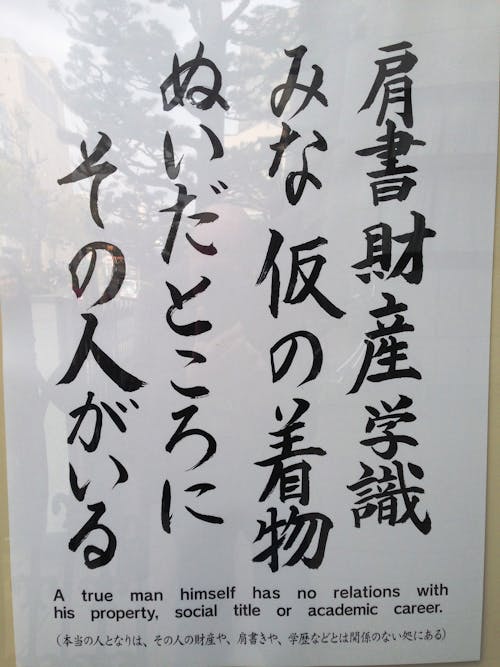 肩書財産学識
みな仮の着物
ぬいだところに
その人がいる
A true man himself has no relations with
his property, social title or academic career.
（本当の人となりは、その人の財産や、肩書きや、学歴などとは関係のない処にある）